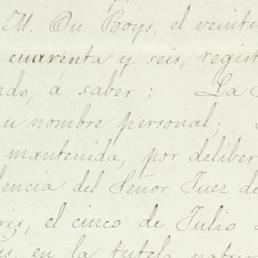 M. Du Boys, el veinti
cuarenta y seis, regist
ndo, á saber: La
u nombre personal;
mantenida, por deliber
dencia del Señor Juez de
res, el cinco de Julio
is, en la tutela natur